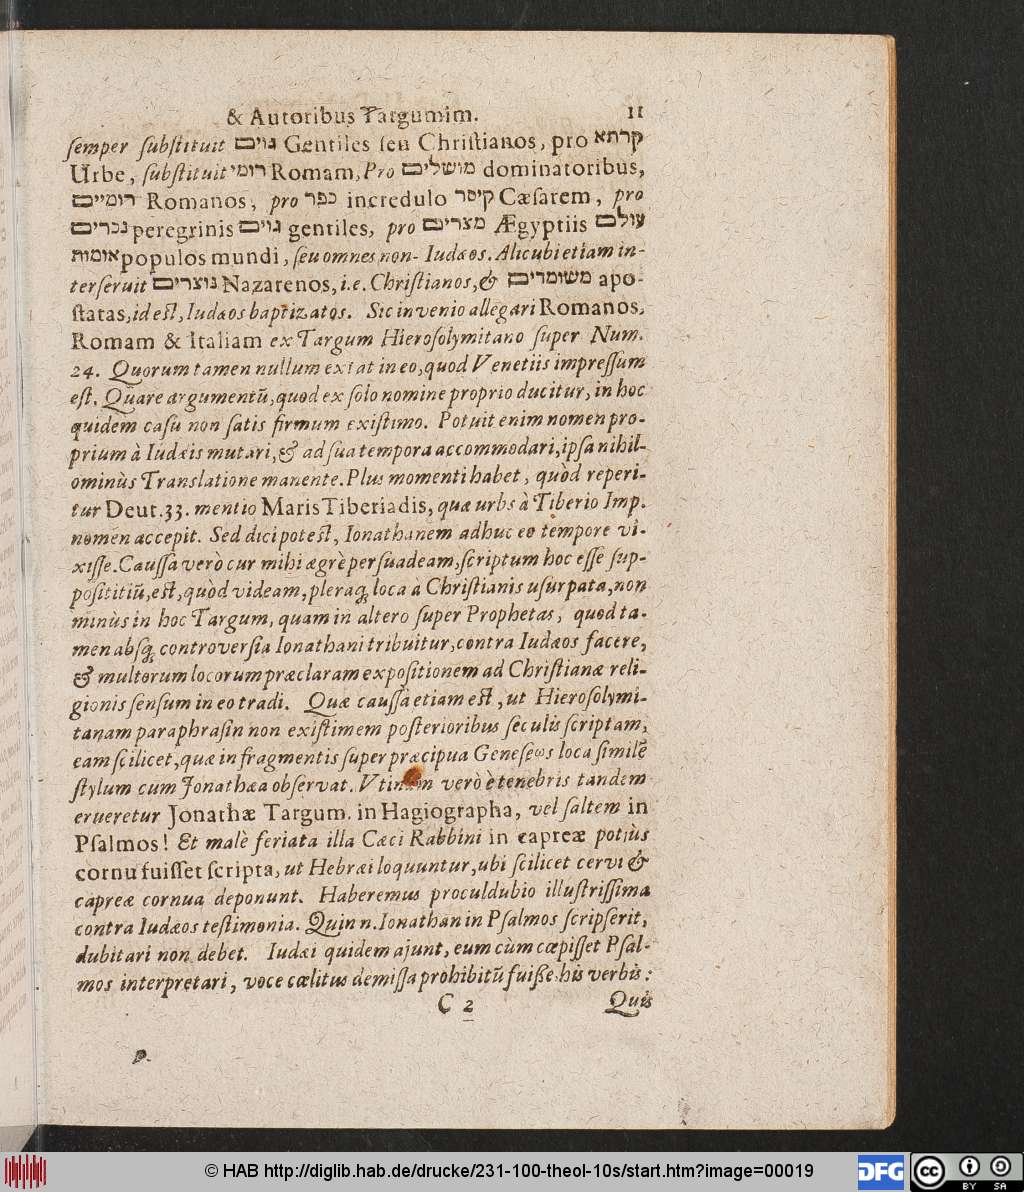 & Autoribus Targumim. 11
semper substituit גוים Gentiles seu Christianos, pro קרתא
Urbe, substituit רומי Romam, Pro מושלים dominatoribus,
רומיים Romanos, pro כפר incredulo קיסר Cæsarem, pro
נכרים peregrinis גוים gentiles, pro מצרים Ægyptiis עולם
אומות populos mundi, seu omnes non-Iudæos. Alicubi etiam in-
terseruit נוצרים Nazarenos, i.e. Christianos, & משומרים apo-
statas, id est, Iudæos baptizatos. Sic invenio allegari Romanos,
Romam & Italiam ex Targum Hierosolymitano super Num.
24. Quorum tamen nullum extat in eo, quod Venetiis impressum
est. Quare argumentũ, quod ex solo nomine proprio ducitur, in hoc
quidem casu non satis firmum existimo. Potuit enim nomen pro-
prium à Iudæis mutari, & ad sua tempora accommodari, ipsa nihil-
ominùs Translatione manente. Plus momenti habet, quòd reperi-
tur Deut. 33. mentio Maris Tiberiadis, quæ urbs à Tiberio Imp.
nomen accepit. Sed dici potest, Ionathanem adhuc eo tempore vi-
xisse. Caussa verò cur mihi ægrè persuadeam, scriptum hoc esse sup-
posititiũ, est, quòd videam, pleraq; loca à Christianis usurpata, non
minùs in hoc Targum, quam in altero super Prophetas, quod ta-
men absq; controversia Ionathani tribuitur, contra Iudæos facere,
& multorum locorum præclaram expositionem ad Christianæ reli-
gionis sensum in eo tradi. Quæ caussa etiam est, ut Hierosolymi-
tanam paraphrasin non existimem posterioribus seculis scriptam,
eam scilicet, quæ in fragmentis super præcipua Geneseωs loca similẽ
stylum cum Jonathæa observat. Vtinam verò è tenebris tandem
erueretur Jonathæ Targum. in Hagiographa, vel saltem in
Psalmos! Et malè feriata illa Cæci Rabbini in capreæ potiùs
cornu fuisset scripta, ut Hebræi loquuntur, ubi scilicet cervi &
capreæ cornua deponunt. Haberemus proculdubio illustrissima
contra Iudæos testimonia. Quin n. Ionathan in Psalmos scripserit,
dubitari non debet. Iudæi quidem ajunt, eum cùm cœpisset Psal-
mos interpretari, voce cœlitus demissa prohibitũ fuisse his verbis:
C 2 Quis
© HAB http://diglib.hab.de/drucke/231-100-theol-10s/start.htm?image=00019
DFG
cc BY SA